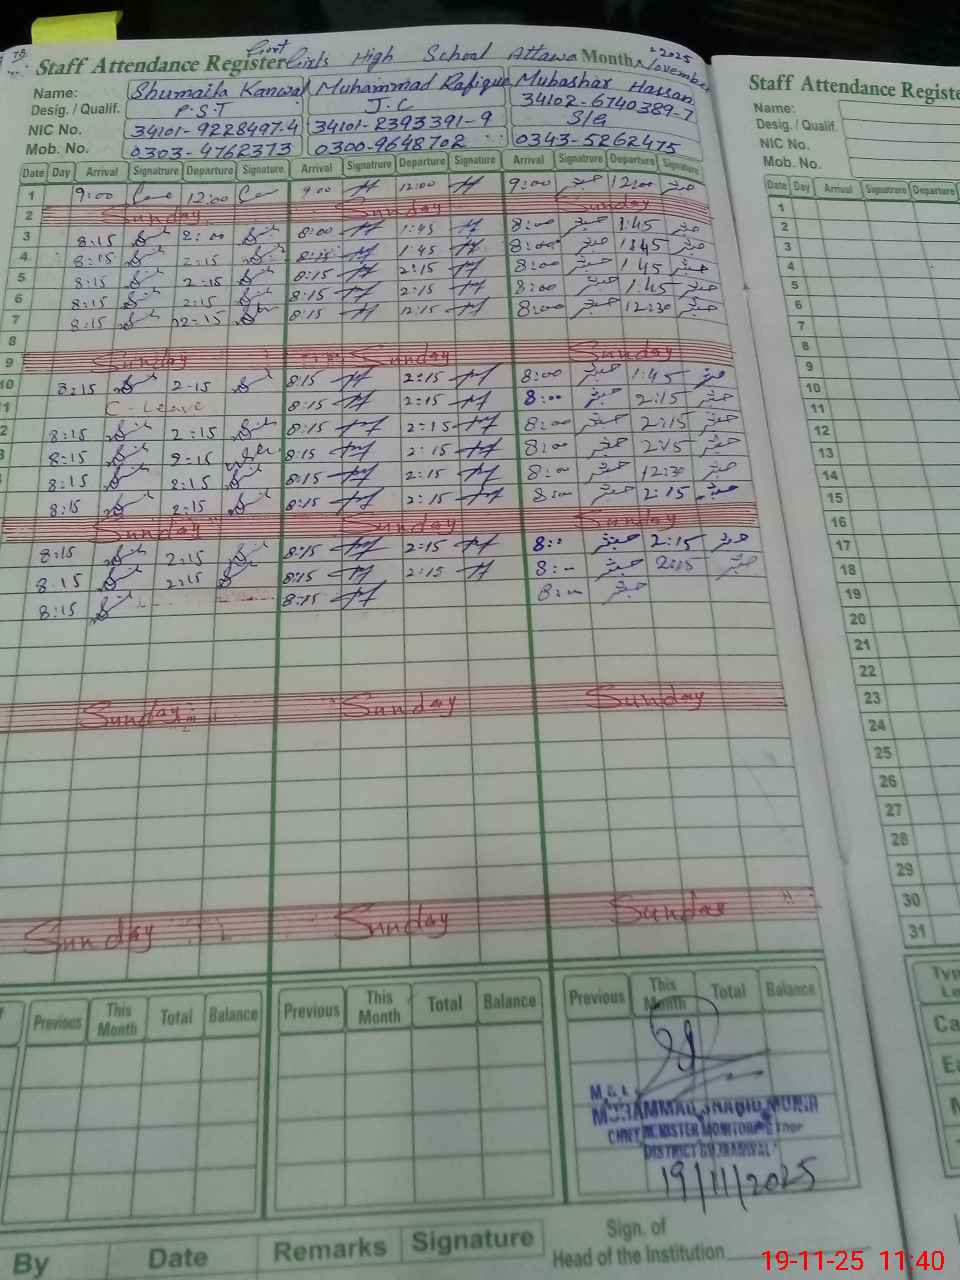 Staff Attendance Register Govt Girls High School Attawa Month November 2025
Name: Shumaila Kanwal Muhammad Rafique Mubashar Hassan
Desig. / Qualif. P.S.T J.C 34102-6740389-7
NIC No. 34101-9228497-4 34101-2393391-9 S/G
Mob. No. 0303-4762373 0300-9648702 0343-5262475
Date Day Arrival Signatrure Departure Signature Arrival Signatrure Departure Signature Arrival Signatrure Departure Signature
1 9:00 12:00 9:00 12:00 9:00 مبشر 12:00 مبشر
2 Sunday Sunday Sunday
3 8:15 2:00 8:00 1:45 8:00 مبشر 1:45 مبشر
4 8:15 2:15 8:15 1:45 8:00 مبشر 1:45 مبشر
5 8:15 2:15 8:15 2:15 8:00 مبشر 1:45 مبشر
6 8:15 2:15 8:15 2:15 8:00 مبشر 1:45 مبشر
7 8:15 12:15 8:15 12:15 8:00 مبشر 12:30 مبشر
8
9 Sunday Sunday Sunday
10 8:15 2:15 8:15 2:15 8:00 مبشر 1:45 مبشر
C-Leave 8:15 2:15 8:00 مبشر 2:15 مبشر
8:15 2:15 8:15 2:15 8:00 مبشر 2:15 مبشر
8:15 2:15 8:15 2:15 8:00 مبشر 2:15 مبشر
8:15 8:15 8:15 2:15 8:00 مبشر 12:30 مبشر
8:15 2:15 8:15 2:15 8:00 مبشر 2:15 مبشر
Sunday Sunday Sunday
8:15 2:15 8:15 2:15 8: مبشر 2:15 مبشر
8:15 2:15 8:15 2:15 8: مبشر 2:15 مبشر
8:15 8:15 8: مبشر
Sunday Sunday Sunday
Sunday Sunday Sunday
Previous This Month Total Balance Previous This Month Total Balance Previous This Month Total Balance
MUHAMMAD SHAHID MUNIR
CHIEF MINISTER MONITORING
DISTRICT GUJRANWALA
19/11/2025
Sign. of
Head of the Institution
By Date Remarks Signature
Staff Attendance Registe
Name:
Desig. / Qualif.
NIC No.
Mob. No.
Date Day Arrival Signatrure Departure
1
2
3
4
5
6
7
8
9
10
11
12
13
14
15
16
17
18
19
20
21
22
23
24
25
26
27
28
29
30
31
19-11-25 11:40